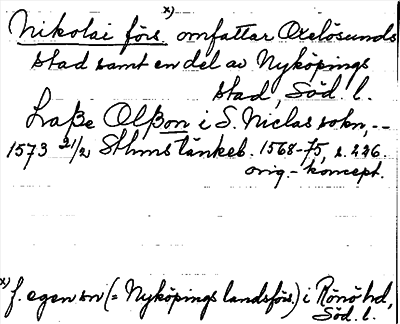 Nikolai förs. x) omfattar Oxelösunds
stad samt en del av Nyköpings
stad, Söd. l.
Laße Olßon i S. Niclas sokn, --
1573 21/2 Sthms tänkeb. 1568-75, s. 226.
orig.-koncept.
x) f. egen sn (= Nyköpings landsförs.) i Rönö hd,
Söd. l.